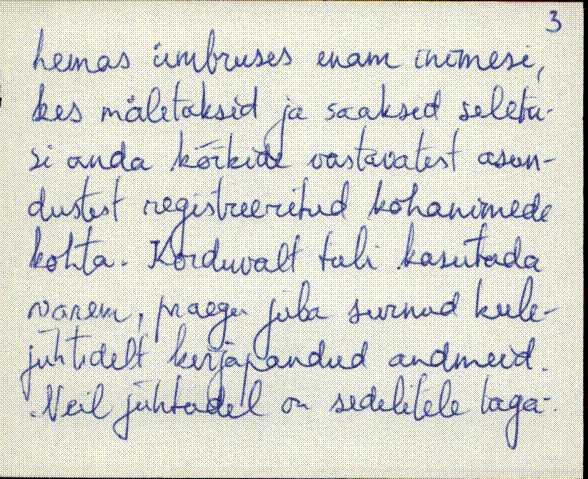 3
hemas ümbruses enam inimesi,
kes mäletaksid ja saaksid seletu-
si anda kõikide vastavatest asun-
dustest registreeritud kohanimede
kohta. Korduvalt tuli kasutada
varem, praegu juba surnud keele-
juhtidelt kirjapandud andmeid.
Neil juhtudel on sedelitele taga-